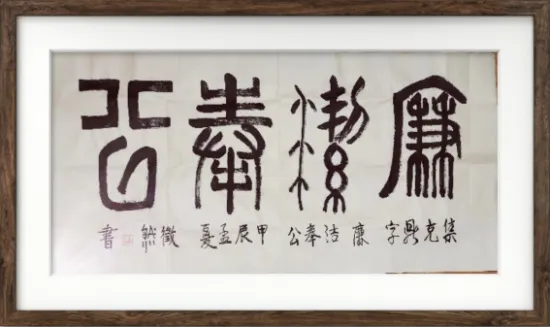 廉潔奉公
集克鼎字廉洁奉公甲辰孟夏徵然書